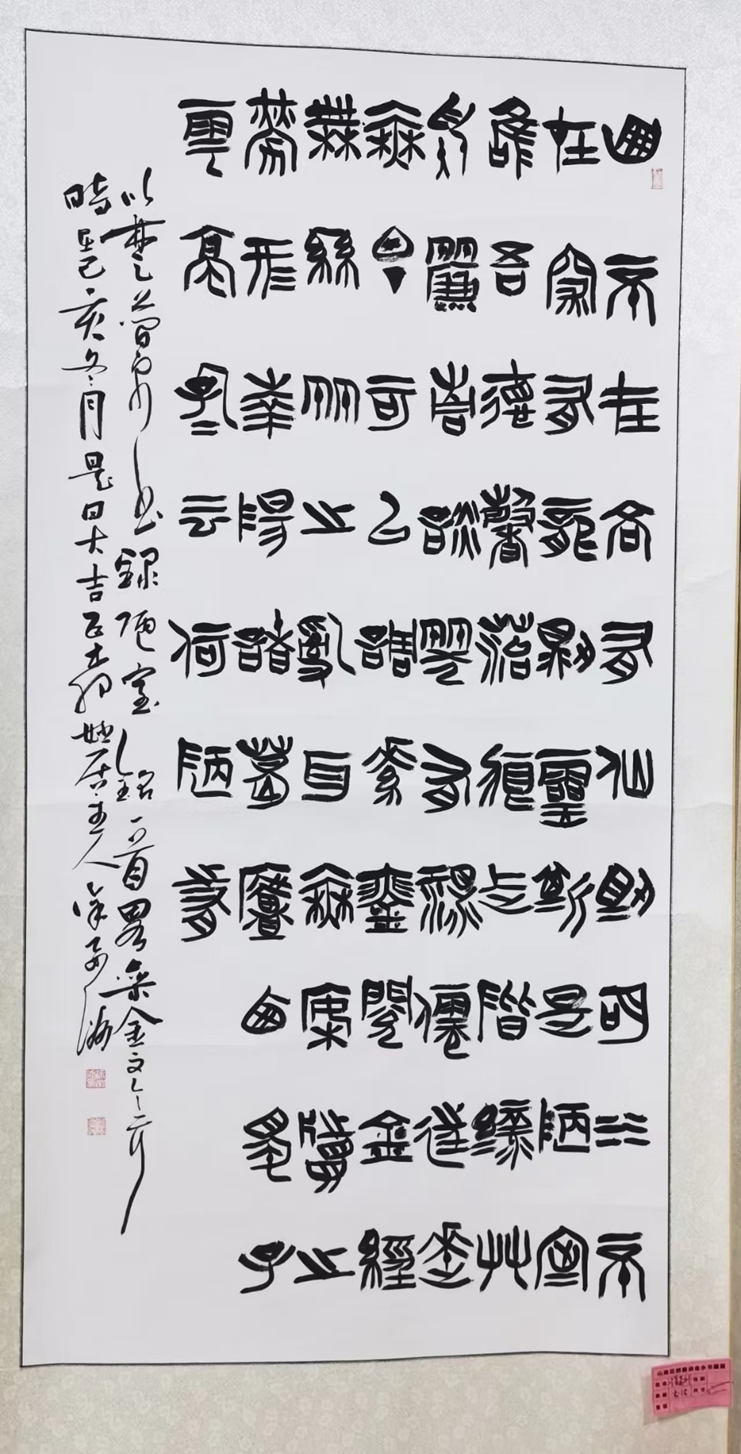 山不在高有仙則明水不
在深有龍則靈斯是陋室
惟吾德馨苔痕上階綠艸
色簾青談笑有鴻儒往來
無白丁可以調素琴閱金經
無絲竹之亂耳無案牘之
勞形南陽諸葛廬西蜀子
雲亭孔子云何陋之有
以楚簡帛書錄陋室銘一首略參金文
時在己亥冬月是日大吉妙居主人海